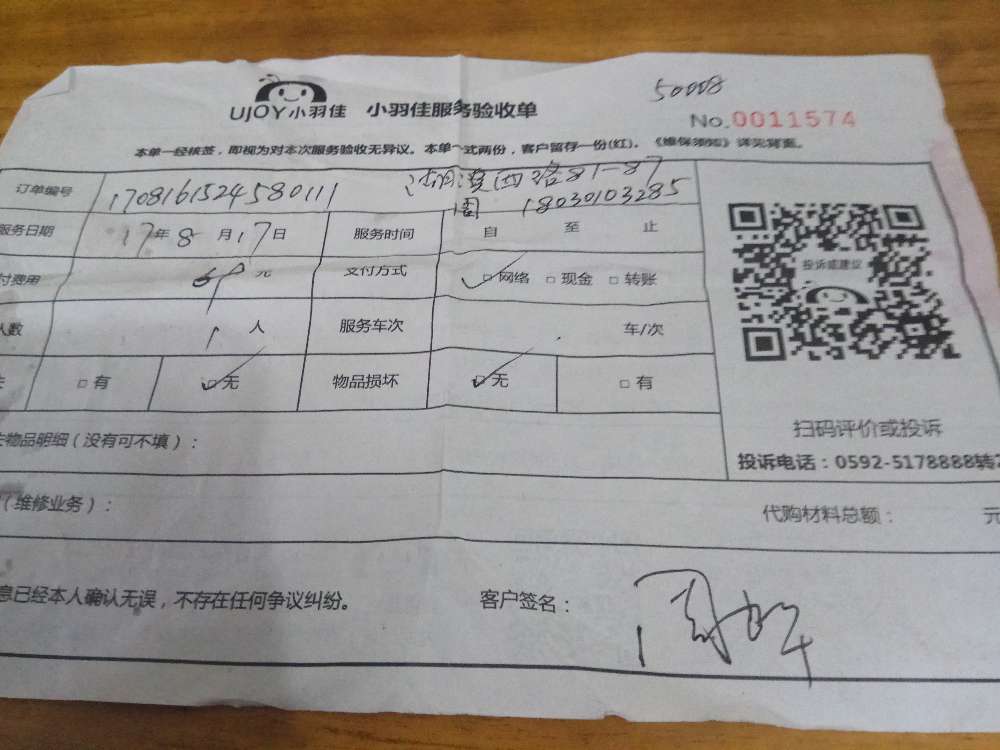 50008
UJOY小羽佳 小羽佳服务验收单
No.0011574
本单一经核签，即视为对本次服务验收无异议。本单一式两份，客户留存一份(红)。《维保须知》详见背面。
订单编号 1708161524580111 湖滨西路81-87
周 18030103285
服务日期 17年8月17日 服务时间 自 至 止
付费用 69元 支付方式 ☑网络 □现金 □转账
人数 1人 服务车次 车/次
□有 ☑无 物品损坏 ☑无 □有
投诉或建议
扫码评价或投诉
物品明细（没有可不填）：
投诉电话：0592-5178888转
（维修业务）：
代购材料总额： 元
息已经本人确认无误，不存在任何争议纠纷。 客户签名：
周